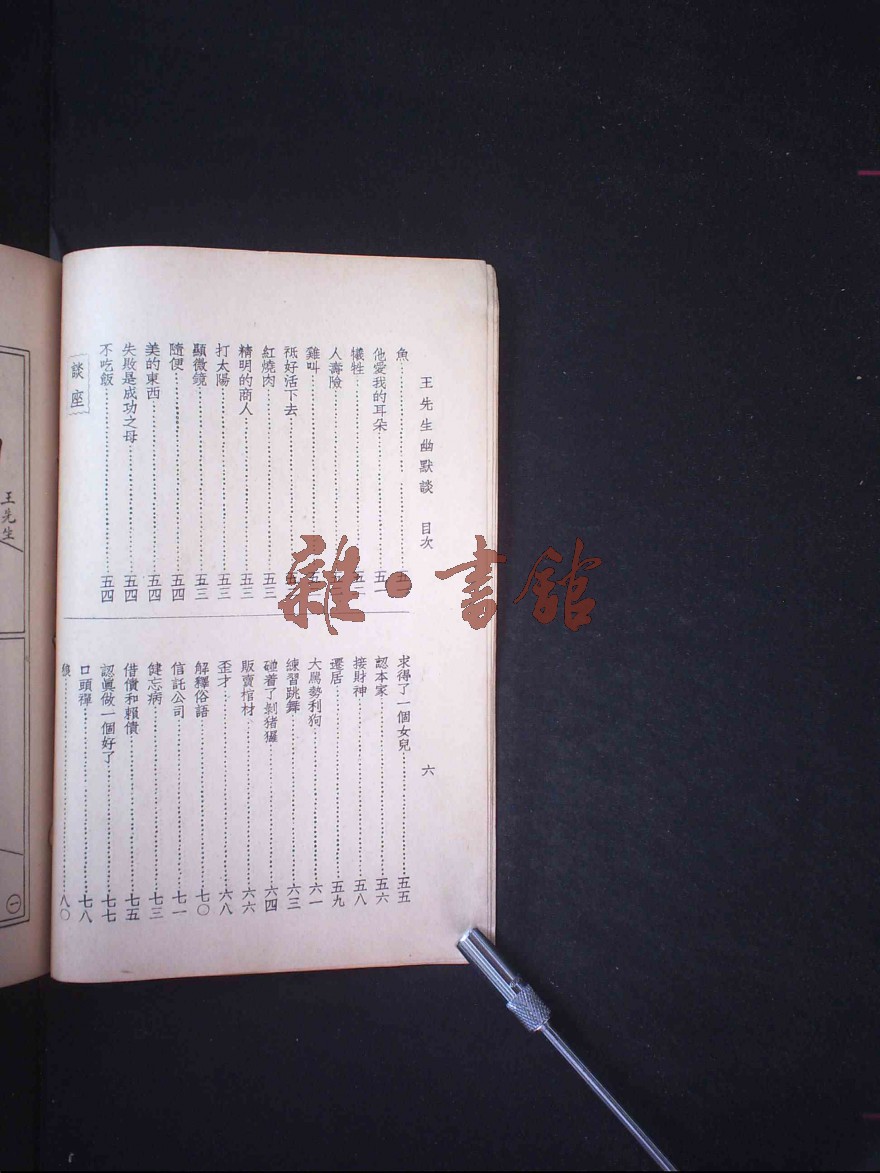 王先生幽默談 目次
六
魚
他愛我的耳朵 五一
犧牲
人壽險
雞叫
祇好活下去
紅燒肉 五三
精明的商人 五三
打太陽 五三
顯微鏡 五三
隨便 五四
美的東西 五四
失敗是成功之母 五四
不吃飯 五四
談座
求得了一個女兒 五五
認本家 五六
接財神 五八
遷居 五九
大罵勢利狗 六一
練習跳舞 六三
碰着了剝猪玀 六四
販賣棺材 六六
歪才 六八
解釋俗語 七〇
信託公司 七一
健忘病 七三
借債和賴債 七五
認眞做一個好了 七七
口頭禪 七八
八〇
王先生
一
雜·書館